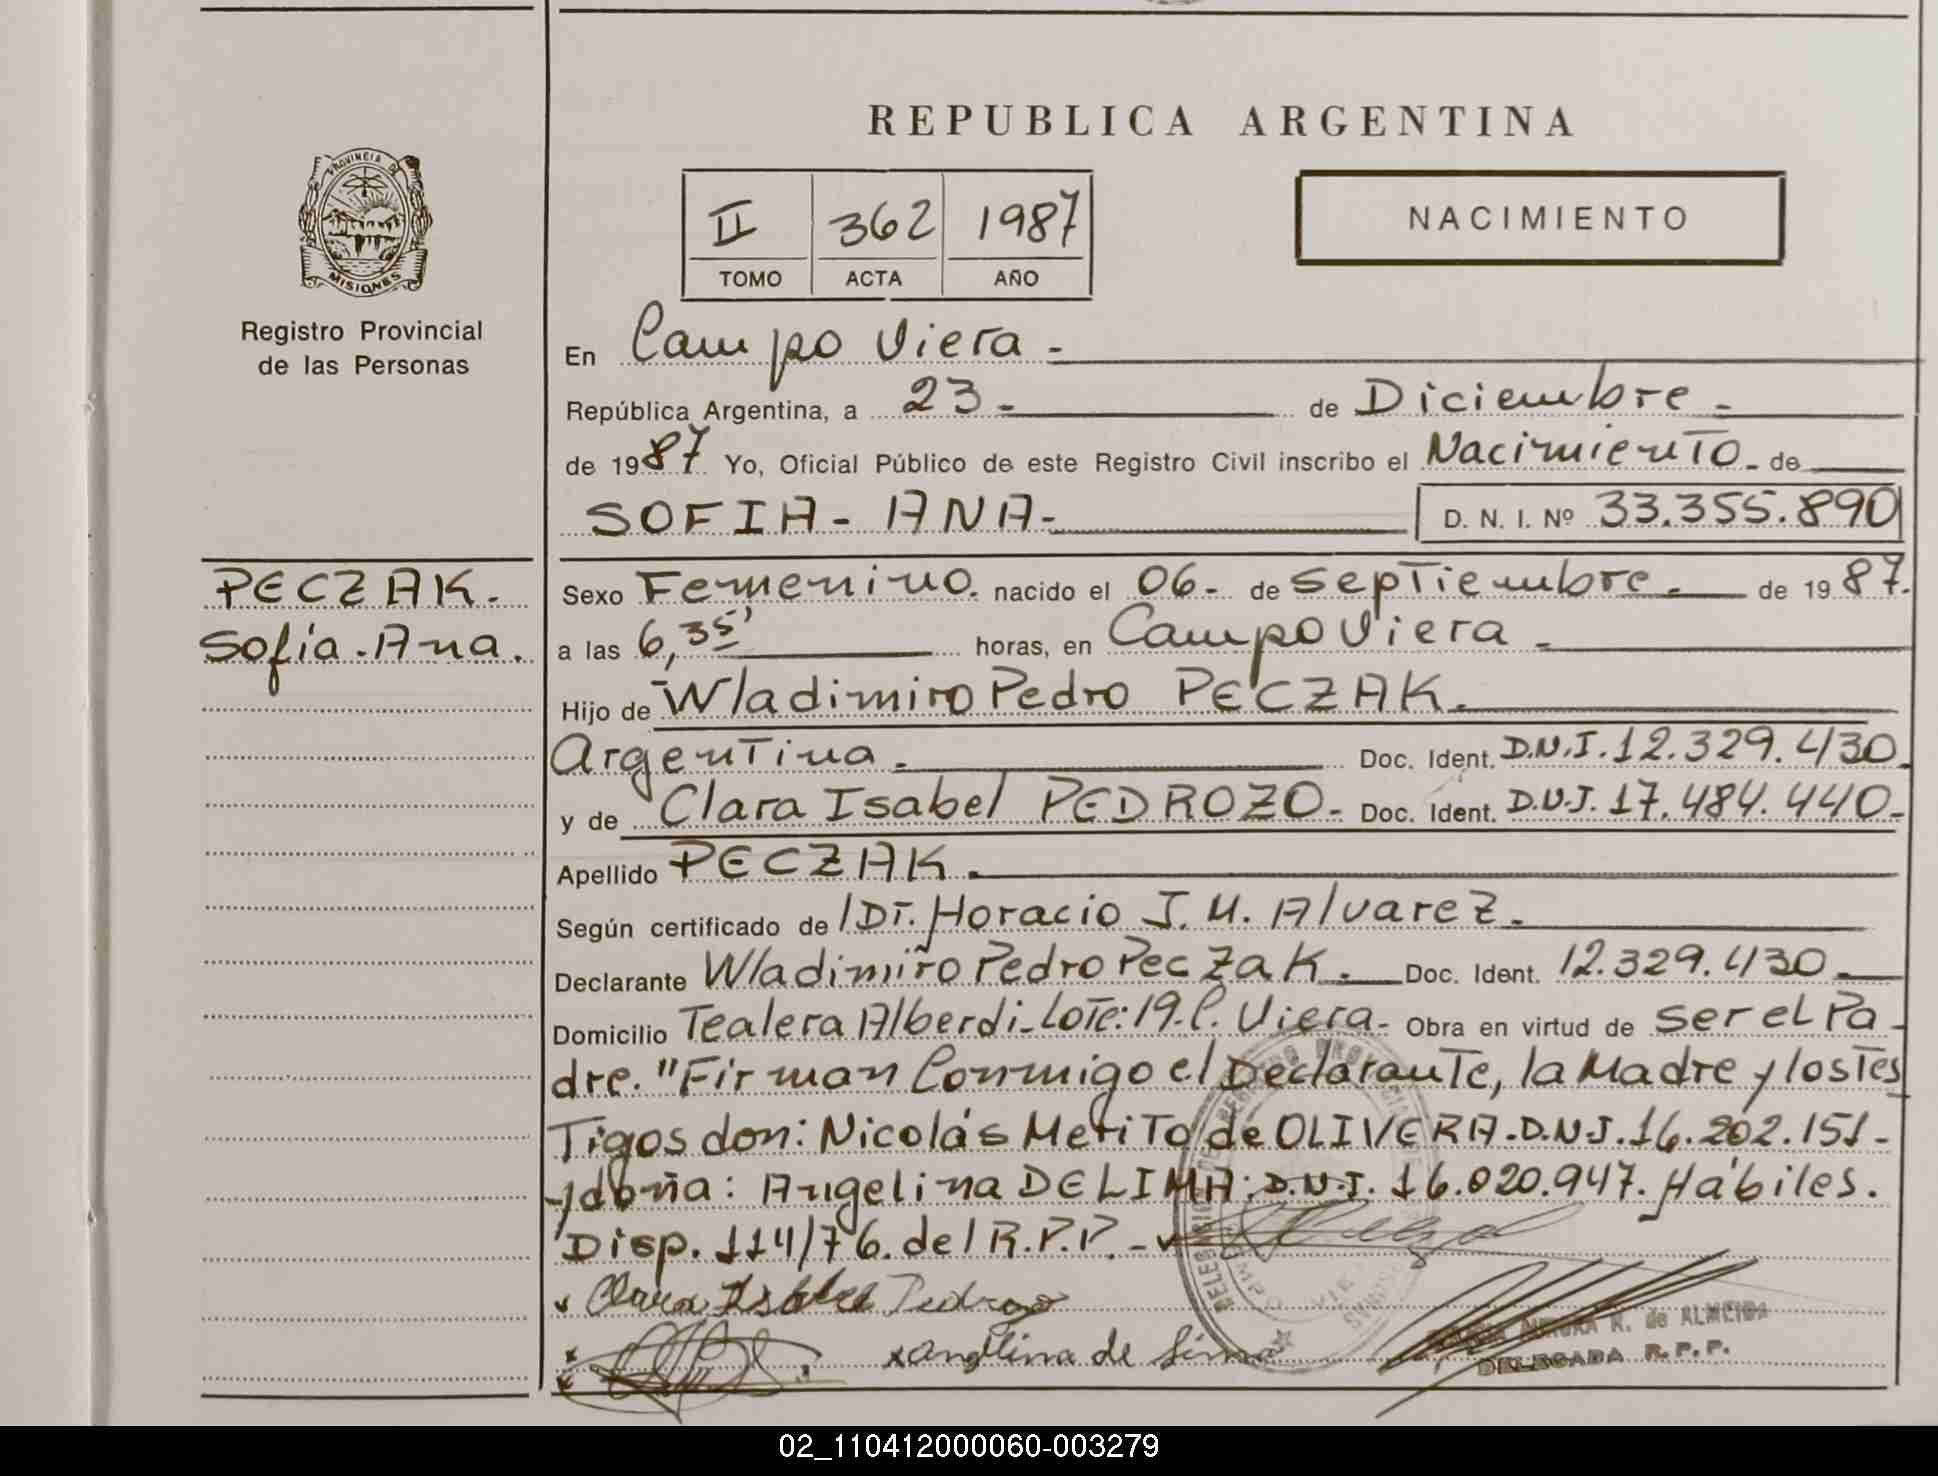 REPUBLICA ARGENTINA
PROVINCIA DE
MISIONES
Registro Provincial
de las Personas
II 362 1987
TOMO ACTA AÑO
NACIMIENTO
En Campo Viera -
República Argentina, a 23 - de Diciembre -
de 1987 Yo, Oficial Público de este Registro Civil inscribo el Nacimiento - de
SOFIA - ANA - D. N. I. Nº 33.355.890
PECZAK.
Sofía - Ana.
Sexo Femenino. nacido el 06 - de Septiembre. de 1987.
a las 6,35' horas, en Campo Viera -
Hijo de Wladimiro Pedro PECZAK.
Argentina. Doc. Ident. D.N.I. 12.329.430.
y de Clara Isabel PEDROZO - Doc. Ident. D.N.I. 17.484.440 -
Apellido PECZAK.
Según certificado de Dr. Horacio J. M. Alvarez.
Declarante Wladimiro Pedro Peczak. Doc. Ident. 12.329.430 -
Domicilio Tealera Alberdi - Lote: 19 - C. Viera - Obra en virtud de ser el Pa -
dre. "Firman Conmigo el Declarante, la Madre y los Tes
Tigos don: Nicolás Merito de OLIVERA - D.N.I. 16.202.151 -
y doña: Angelina DE LIMA: D.N.I. 16.020.947. Hábiles.
Disp. 114/76. del R.P.P. -
Clara Isabel Pedrozo
x Angelina de Lima
R. de ALMEIDA
DELEGADA R. P. P.
02_110412000060-003279